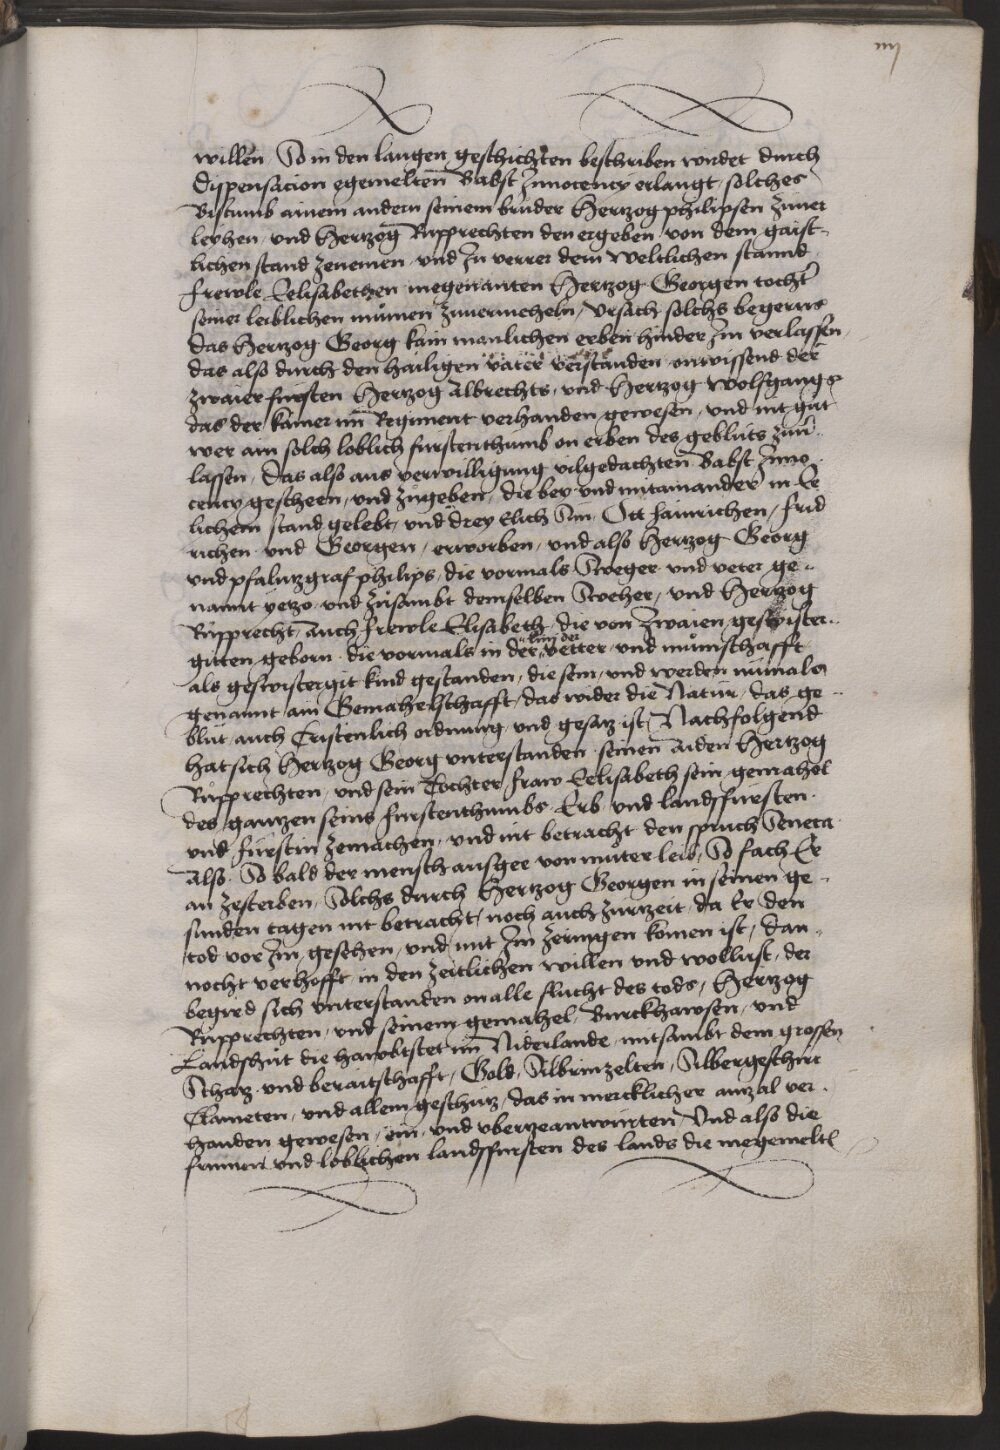 iiij
willen So in den langen geschichten beschriben wirdet durch
Dispensacion egemelten Babst Innocency erlangt, solches
Bistumb ainem andern seinem bruder Hertzog philipsen zuuer
leyhen, und Hertzog Rupprechten den ergeben, von dem gaist-
lichen stand zenemen und zu verrer dem weltlichen stannd
frewle Elisabethen megenanten Hertzog Georgen tochter
seiner leiblichen mumen zuuermeheln, Ursach solchs begerns
das Hertzog Georg kain manlichen erben hinder Im verlassen,
das also durch den hailigen vater verstanden onwissend der
zwaier fursten Hertzog Albrechts, und Hertzog Wolfgangs
das der kamer im Regiment verhanden gewesen, und nit gut
wer ain solch loblich furstenthumb on erben des gebluts zuuer
lassen, das also aus verwilligung vilgedachten Babst Inno
cency gescheen, und zugeben, die bey und mitainander in Ee
lichem stand gelebt, und drey Elich Sun, Ott hainrichen, frid
richen und Georgen, erworben, und also Hertzog Georg
und pfalntzgraf philips, die vormals Sweger und veter ge-
nannt yetzo und zusambt demselben Sweher, und Hertzog
Rupprecht, auch frewle Elisabeth, die von zwaien geswister-
giten geborn die vormals in der linj der vetter und mumschafft
als geswistergit kind gestanden, die sein, und werden numals
genannt ain Gemahelschafft, das wider die Natur, das ge-
blut auch Cristenlich ordnung und gesatz ist, Nachfolgend
hat sich Hertzog Georg understanden seinen aiden Hertzog
Rupprechten, und sein Tochter fraw Elisabeth sein gemahel
des gantzen seins furstenthumbs Erb und landsfursten
und furstin zemachen, und nit betracht den spruch Seneca
also So bald der mensch ausgee von muter leib, So fach Er
an zesterben, Solchs durch Hertzog Georgen in seinen ge-
sunden tagen nit betracht, noch auch zurtzeit, da Er den
tod vor Im gesehen, und mit Im zeringen komen ist, dan-
nocht verhofft, in den zeitlichen willen und wollust, der
begird sich understanden on alle flucht des tods, Hertzog
Rupprechten, und seinem gemahel, Burckhawsen, und
Landshut die hawbtstet im Niderlande, mitsambt dem grossen
Schatz und beraitschafft, Gold, Silbrinzelten, Silbergeschirr
Claineten, und allem geschutz, das in mercklicher anzal ver-
handen gewesen, ein, und uberzeantwurten, Und also die
frumen und loblichen landsfursten des lands die megemelten